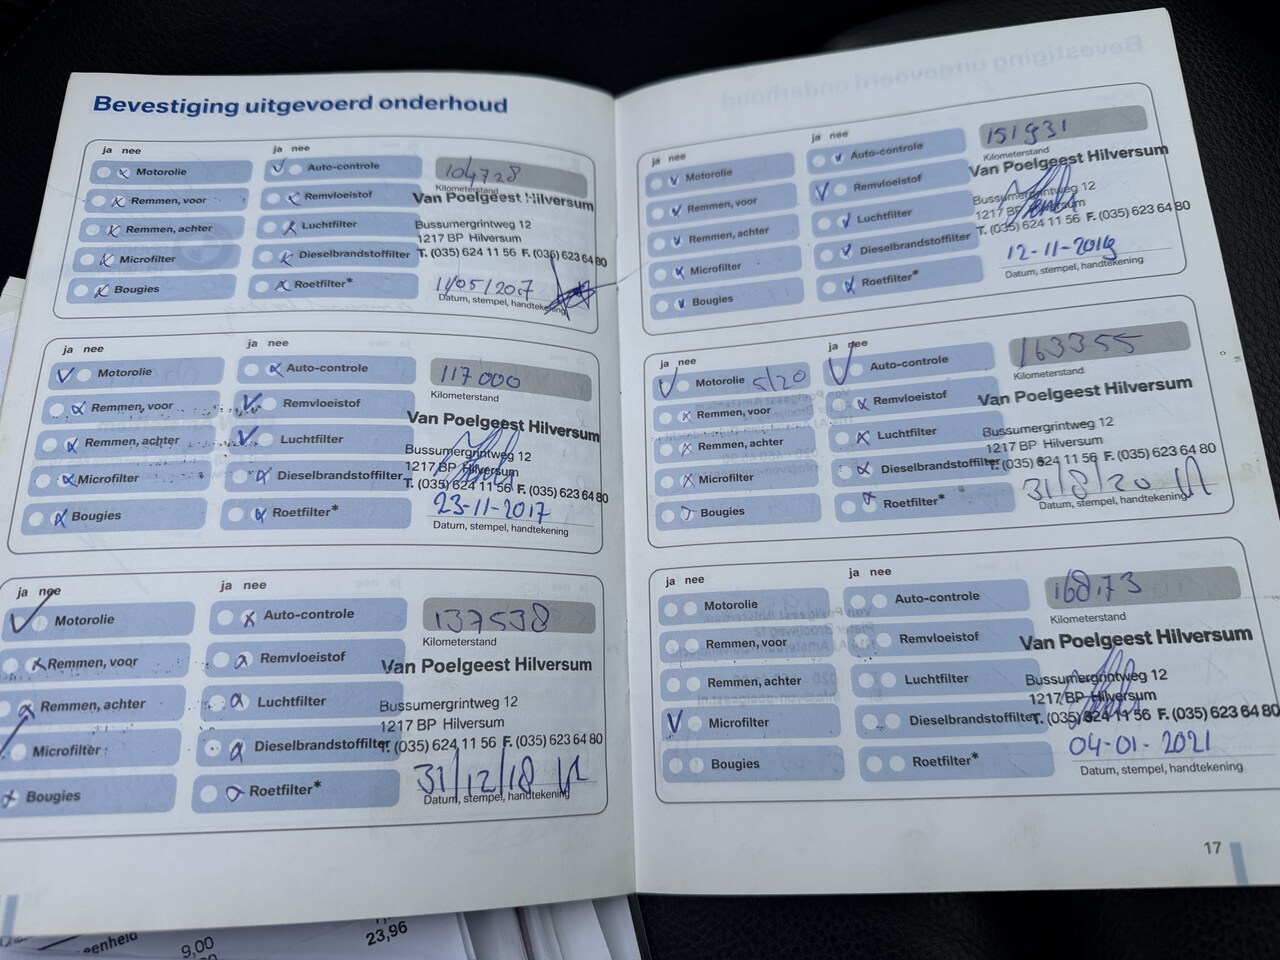 Bevestiging uitgevoerd onderhoud
ja nee
ja nee
Motorolie
Remmen, voor
Remmen, achter
Microfilter
Bougies
Auto-controle
Remvloeistof
Luchtfilter
Dieselbrandstoffilter
Roetfilter*
104728
Kilometerstand
Van Poelgeest Hilversum
Bussumergrintweg 12
1217 BP Hilversum
T. (035) 624 11 56 F. (035) 623 64 80
11/05/2017
Datum, stempel, handtekening
ja nee
ja nee
Motorolie
Remmen, voor
Remmen, achter
Microfilter
Bougies
Auto-controle
Remvloeistof
Luchtfilter
Dieselbrandstoffilter
Roetfilter*
117000
Kilometerstand
Van Poelgeest Hilversum
Bussumergrintweg 12
1217 BP Hilversum
T. (035) 624 11 56 F. (035) 623 64 80
23-11-2017
Datum, stempel, handtekening
ja nee
ja nee
Motorolie
Remmen, voor
Remmen, achter
Microfilter
Bougies
Auto-controle
Remvloeistof
Luchtfilter
Dieselbrandstoffilter
Roetfilter*
137538
Kilometerstand
Van Poelgeest Hilversum
Bussumergrintweg 12
1217 BP Hilversum
T. (035) 624 11 56 F. (035) 623 64 80
31/12/18
Datum, stempel, handtekening
ja nee
ja nee
Motorolie
Remmen, voor
Remmen, achter
Microfilter
Bougies
Auto-controle
Remvloeistof
Luchtfilter
Dieselbrandstoffilter
Roetfilter*
151931
Kilometerstand
Van Poelgeest Hilversum
Bussumergrintweg 12
1217 BP Hilversum
T. (035) 624 11 56 F. (035) 623 64 80
12-11-2019
Datum, stempel, handtekening
ja nee
ja nee
Motorolie 5/20
Remmen, voor
Remmen, achter
Microfilter
Bougies
Auto-controle
Remvloeistof
Luchtfilter
Dieselbrandstoffilter
Roetfilter*
163355
Kilometerstand
Van Poelgeest Hilversum
Bussumergrintweg 12
1217 BP Hilversum
T. (035) 624 11 56 F. (035) 623 64 80
31/8/20
Datum, stempel, handtekening
ja nee
ja nee
Motorolie
Remmen, voor
Remmen, achter
Microfilter
Bougies
Auto-controle
Remvloeistof
Luchtfilter
Dieselbrandstoffilter
Roetfilter*
Kilometerstand
Van Poelgeest Hilversum
Bussumergrintweg 12
1217 BP Hilversum
T. (035) 624 11 56 F. (035) 623 64 80
04-01-2021
Datum, stempel, handtekening
17
9,00
23,96